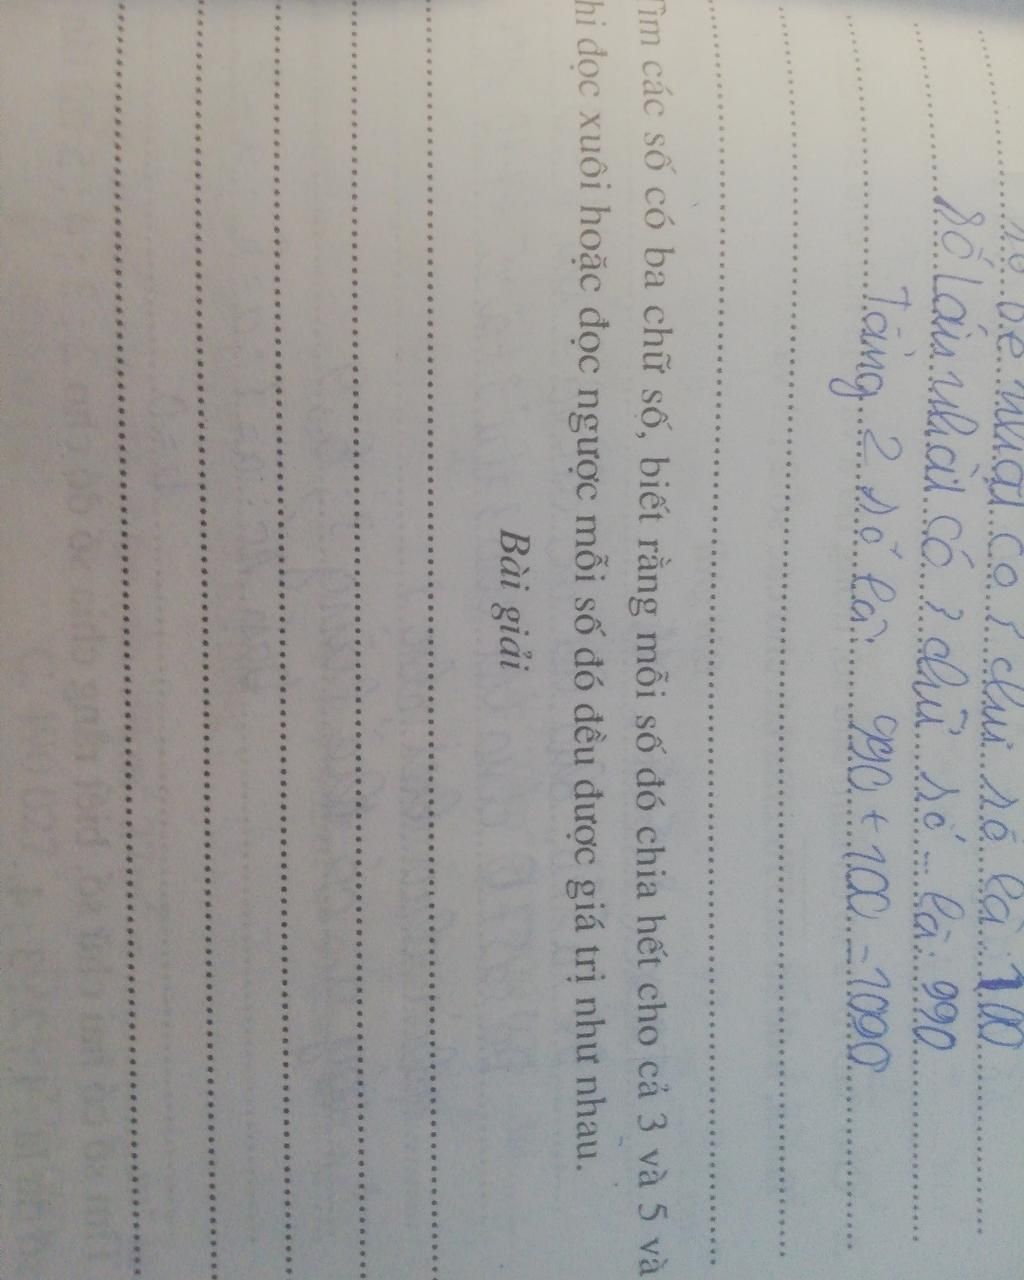 số bé nhất có 3 chữ số là 100
số lớn nhất có 3 chữ số là 990
Tổng 2 số là: 990 + 100 = 1090
Tìm các số có ba chữ số, biết rằng mỗi số đó chia hết cho cả 3 và 5 và
hi đọc xuôi hoặc đọc ngược mỗi số đó đều được giá trị như nhau.
Bài giải